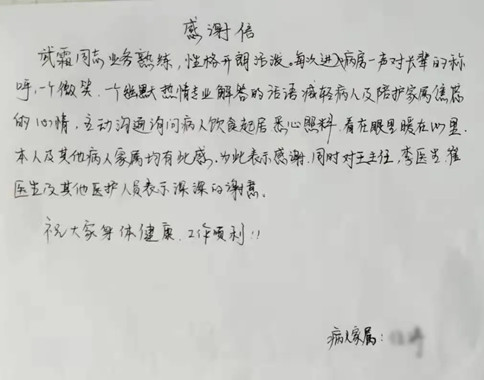 感谢信
武霜同志业务熟练，性格开朗活泼。每次进入病房一声对长辈的称
呼，一个微笑、一个幽默热情专业解答的话语减轻病人及陪护家属焦急
的心情，主动沟通询问病人饮食起居悉心照料，看在眼里暖在心里。
本人及其他病人家属均有此感，为此表示感谢，同时对王主任，李医生，崔
医生及其他医护人员表示深深的谢意。
祝大家身体健康、工作顺利！！
病人家属：